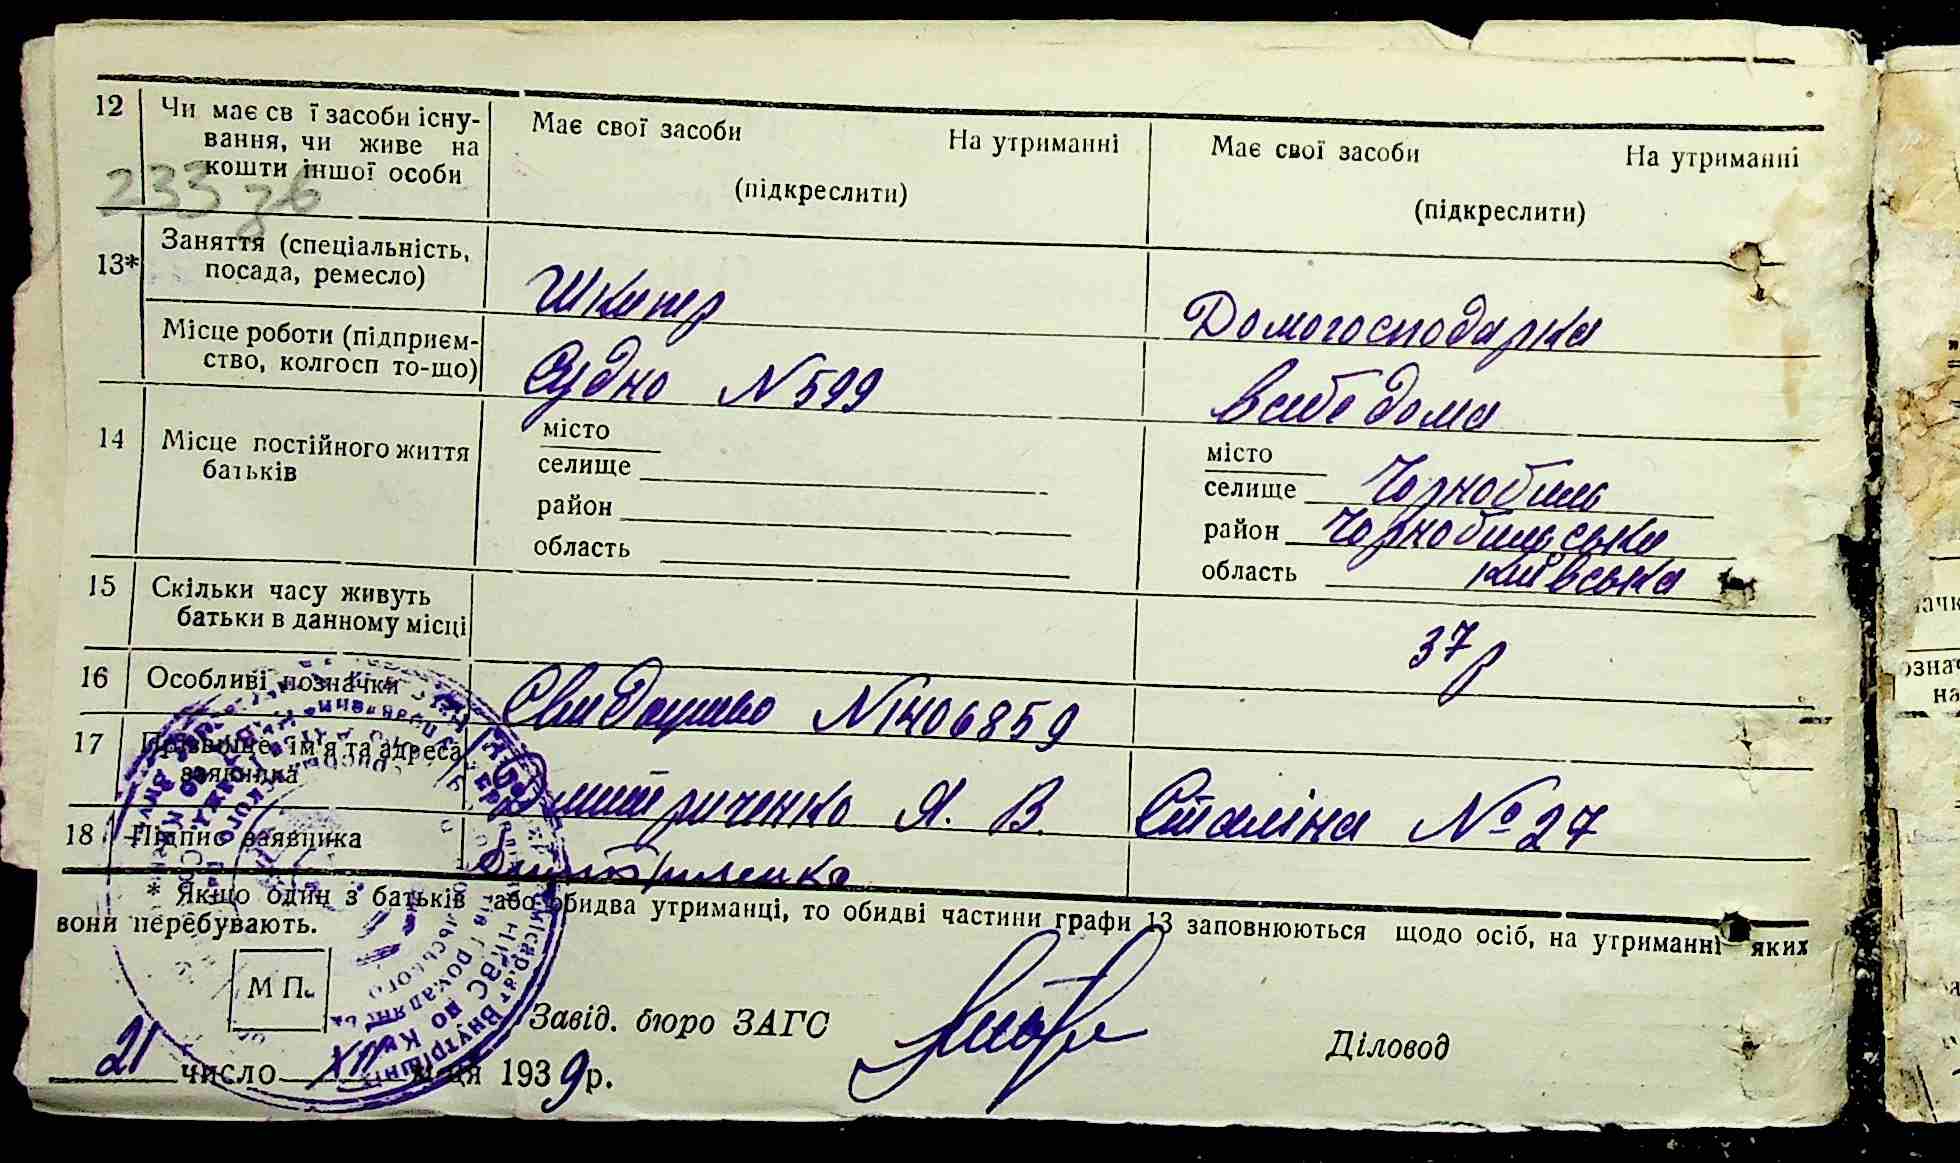 12 Чи має св ї засоби існу- Має свої засоби На утриманні Має свої засоби На утриманні
вання, чи живе на
кошти іншої особи (підкреслити) (підкреслити)
233 зв
13* Заняття (спеціальність,
посада, ремесло) Шкипер Домогосподарка
Місце роботи (підприєм-
ство, колгосп то-що) Судно N 599 В себе дома
14 Місце постійного життя
батьків
місто місто
селище селище Чорнобиль
район район Чорнобильськи
область область Київська
15 Скільки часу живуть
батьки в данному місці 37 р
16 Особливі позначки Свидоцтво N 1406859
17 Прізвище, ім'я та адреса
заявника Дмитриченко Я. В. Сталіна № 27
18 Підпис заявника Дмитриченко
* Якщо один з батьків або обидва утриманці, то обидві частини графи 13 заповнюються щодо осіб, на утриманні яких
вони перебувають.
М П.
Завід. бюро ЗАГС Діловод
21 число XII м-ця 1939 р.